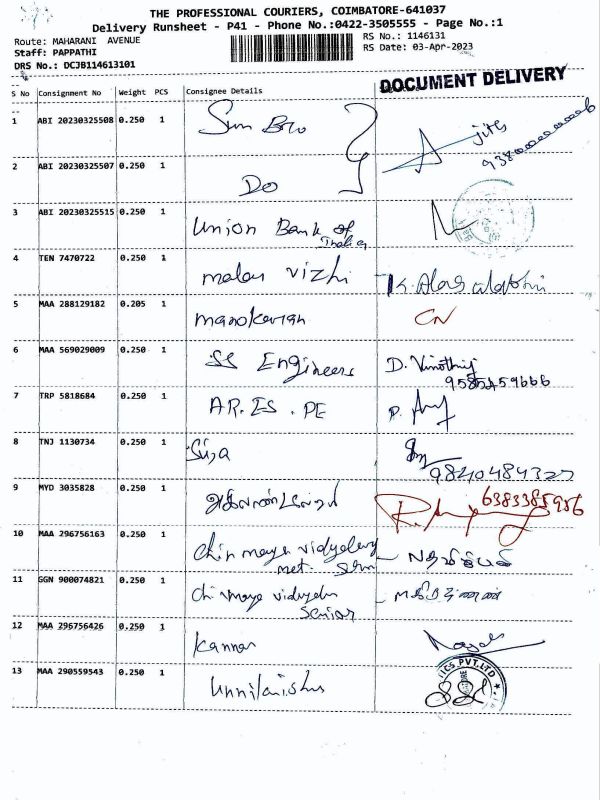 THE PROFESSIONAL COURIERS, COIMBATORE-641037
Delivery Runsheet - P41 - Phone No.:0422-3505555 - Page No.:1
Route: MAHARANI AVENUE
RS No.: 1146131
Staff: PAPPATHI
RS Date: 03-Apr-2023
DRS No.: DCJB114613101
DOCUMENT DELIVERY
S No Consignment No Weight PCS Consignee Details
1 ABI 20230325508 0.250 1 Sun Bro
2 ABI 20230325507 0.250 1 Do
3 ABI 20230325515 0.250 1 Union Bank of
India
4 TEN 7470722 0.250 1 malar vizhi
5 MAA 288129182 0.205 1 manokaran CN
6 MAA 569029009 0.250 1 SS Engineers D. Vinothij
9585459666
7 TRP 5818684 0.250 1 AR. ES. PE
8 TNJ 1130734 0.250 1
9840484327
9 MYD 3035828 0.250 1 6383385986
10 MAA 296756163 0.250 1 Chinmaya vidyalaya
11 GGN 900074821 0.250 1 Chinmaya
Senior
12 MAA 296756426 0.250 1 Kannan
13 MAA 290559543 0.250 1
ICS PVT.LTD